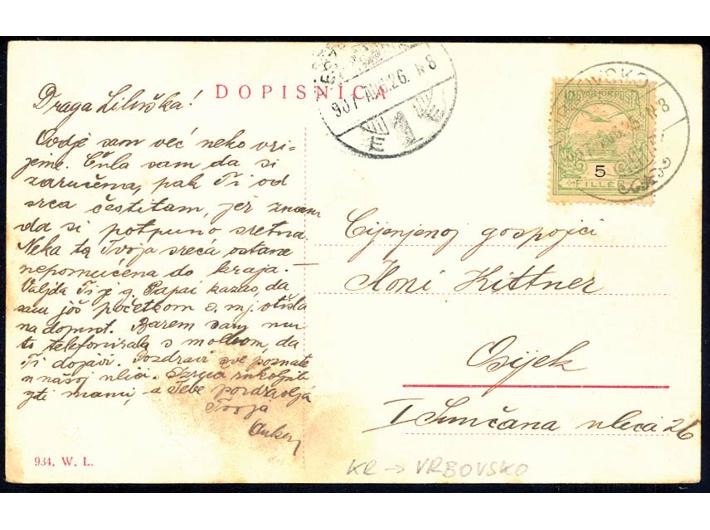 DOPISNICA
Draga Liluška!
Ovdje sam već neko vri-
jeme. Čula sam da si
zaručena, pak Ti od
srca čestitam, jer znam
da si potpuno sretna.
Neka ta Tvoja sreća ostane
nepomućena do kraja. —
Valjda Ti je g. Papai kazao, da
sam još početkom o. mj. otišla
na dopust. Barem sam mu
to telefonirala s molbom, da
Ti dojavi. Pozdravi sve poznate
u našoj ulici.
mami, a Tebe pozdravlja
Tvoja
907 AUG. 26. N 8
VRBOVSKO
MAGYAR KIR. POSTA
5
FILLÉR
Cijenjenoj gospojici
Iloni Kittner
Osijek
I Sunčana ulica 26
934. W. L.
KR → VRBOVSKO